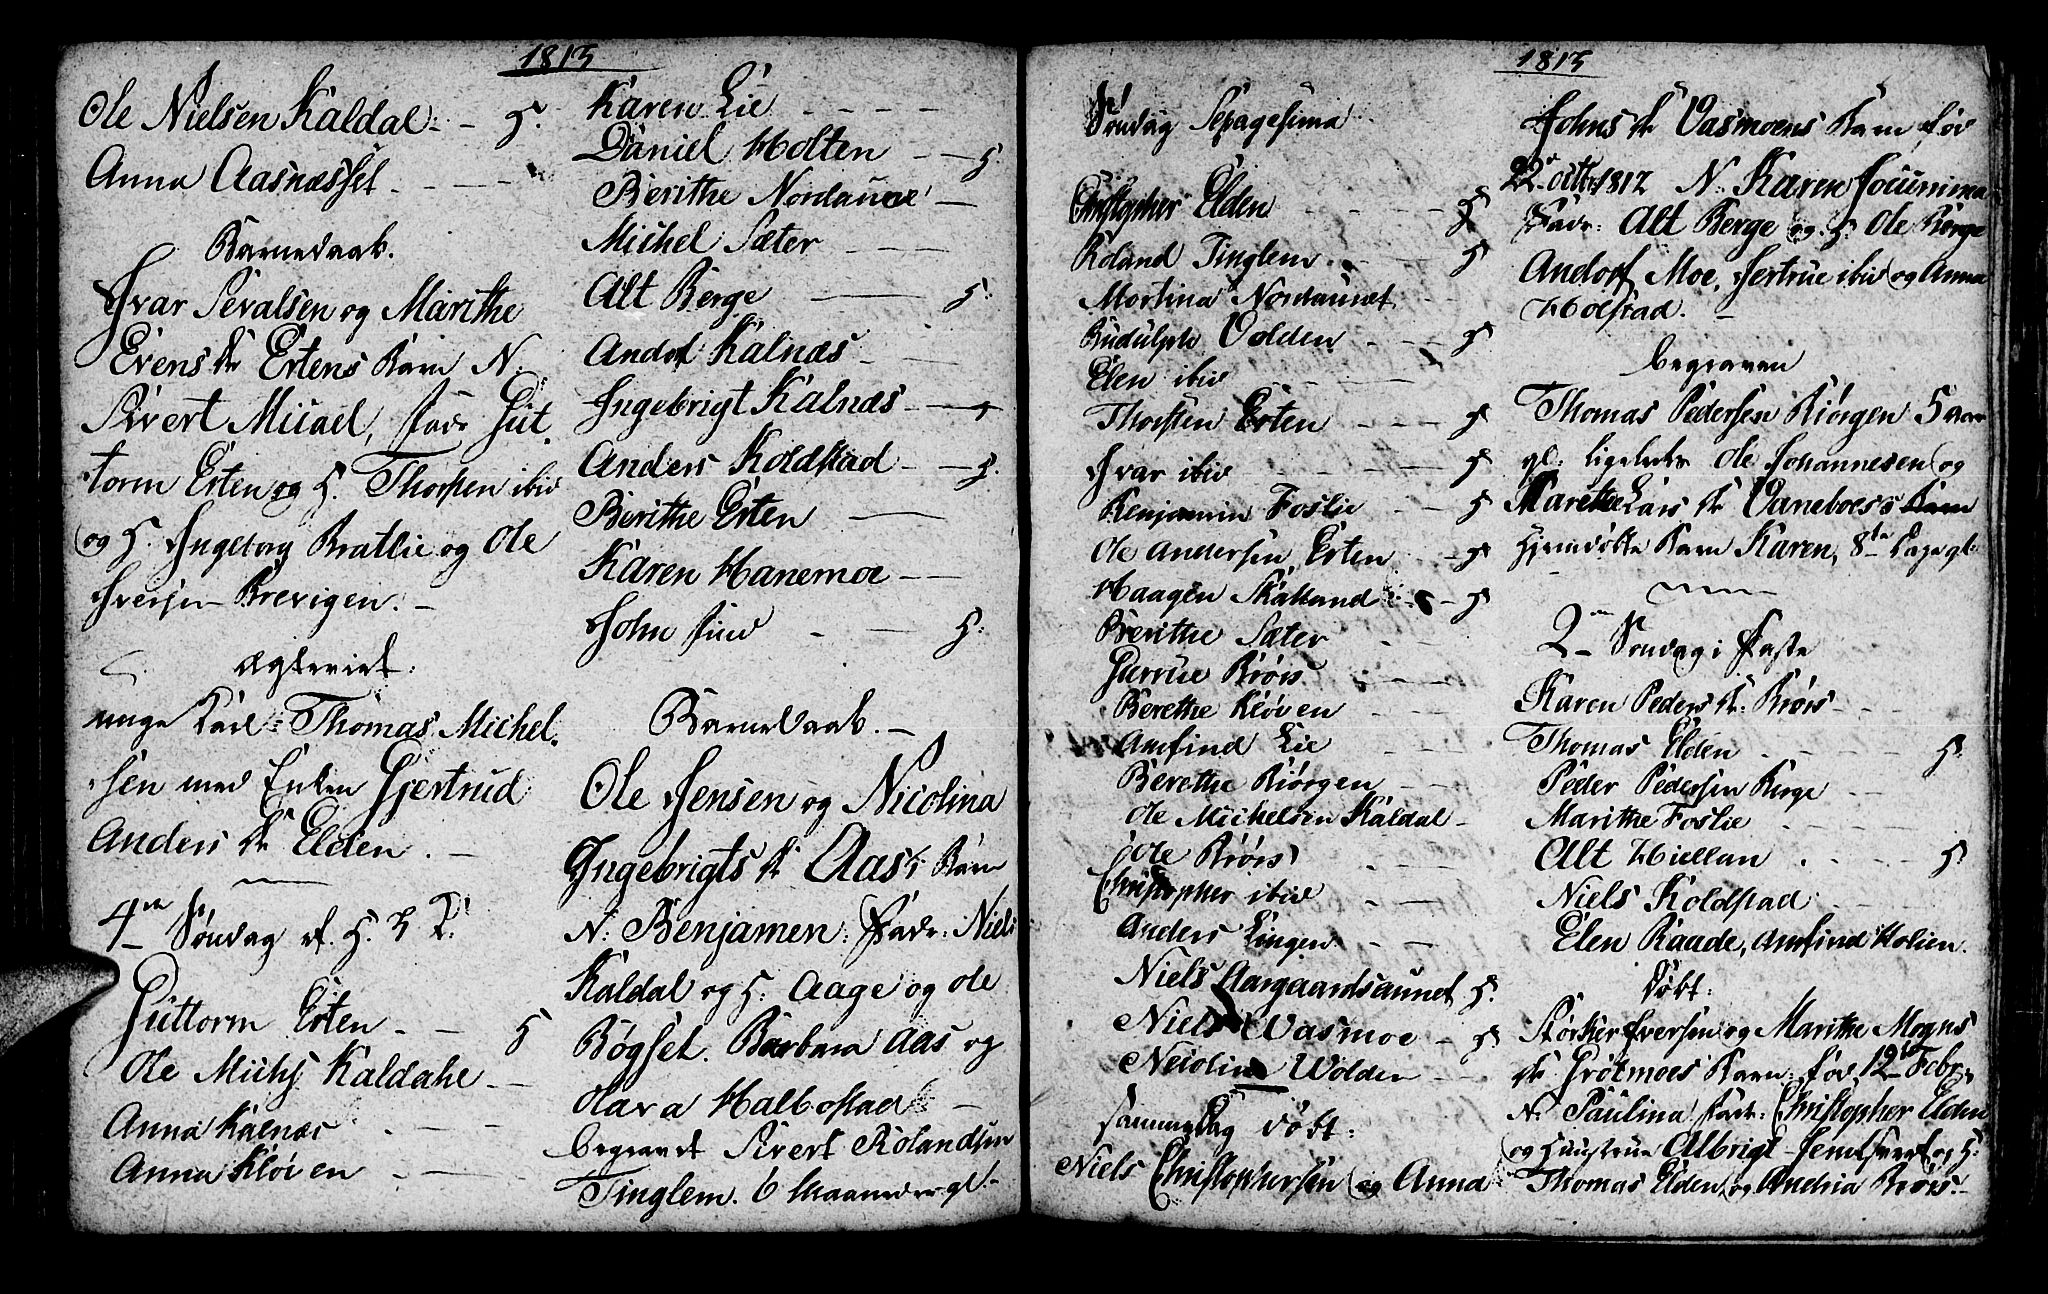 1813
Ole Nielsen Kaldal - - H.
Anna Aasnæsset - - -
Barnedaab.
Ivar Sevalsen og Marithe
Evens Dr Ertens Barn N.
Sivert Micael, fadr Gut
torm Erten og H. Thorsten ibid
og H. Ingeborg Bratlie og Ole
Iversen Brevigen. -
Ægteviet:
unge Karl Thomas Michel
sen med Enken Gjertrud
Anders Dr Elden. -
4de Søndag ef. H. 3 K.
Guttorm Erten - - H
Ole Michs Kaldahl - -
Anna Kalnæs - - -
Anna Kløven - - -
Karen Lie - - - -
Daniel Holten - - H.
Berithe Nordaunet -
Michel Sæter - - -
Alt Berge - H.
Andol Kalnæs - -
Ingebrigt Kalnæs - - H
Anders Koldstad - - H.
Berithe Erten -
Karen Hanemoe - -
John - - H.
Barnedaab. -
Ole Jensen og Nicolina
Ingebrigts Dr Aas's Barn
N: Benjamen: Fadr: Niels
Kaldal og H: Aage og Ole
Bøgset. Barbara Aas og
Olava Halbostad -
begravet Sivert Rolandsen
Tinglem. 6 Maaneder gl.
1813
Søndag Sepagesima
Christopher Elden - - - - H
Roland Tinglem - - H
Martina Nordaunet - -
Rudulph Volden - - - H
Elen ibid - - - -
Thorsten Erten - - - H
Ivar ibid - - - - - H
Benjamin Foslie - - H
Ole Andersen Erten - - H
Haagen Skatland - - H
Berithe Sæter - -
Gurrue Brørs - - -
Berethe Kløven - - -
Amfind Lie - - -
Berethe Kiørgen - - -
Ole Michelsen Kaldal -
Ole Brørs - - -
Christopher ibid - - -
Anders Lingen - -
Niels Aargaardsaunet H.
Niels Vasmoe - H
Nicolin Wolden - -
samme Dag døbt:
Niels Christophersen og Anna
1813
Johns Dr Vasmoens Barn fød
22de octbr 1812 N: Karen Jocumina
Fadr: Alt Berge og H: Ole Berge
Andorf Moe, Jertrue ibid og Anna
Holstad. -
begraven
Thomas Pedersen Kiørgen 5 aar
gl: ligeledes Ole Johannesen og
Marethe Lars Dr Vaneboes's Barn
hjemdøbte Barn Karen, 8te Dage gl:
2den Søndag i Faste
Karen Peders Dr: Brørs - - -
Thomas Elden - - - H.
Peder Pedersen Berge - -
Marithe Foslie - - - -
Alt Hiellan - - - H.
Niels Koldstad - - -
Elen Raade, Amfind Holien.
Døbt:
Størker Iversen og Marithe Mogns
Dr Grøtmoes Barn: fød 12te Febr,
N: Paulina fadr: Christopher Elden
og Hunstrue Albrigt og H:
Thomas Elden og Andria Brørs. -